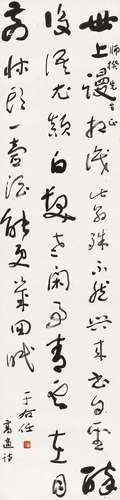 世上謾相識此翁殊不然興來書自聖醉
後語尤顛白髮老閑事青雲在目
前牀頭一壺酒能更幾回眠
于右任
高適詩